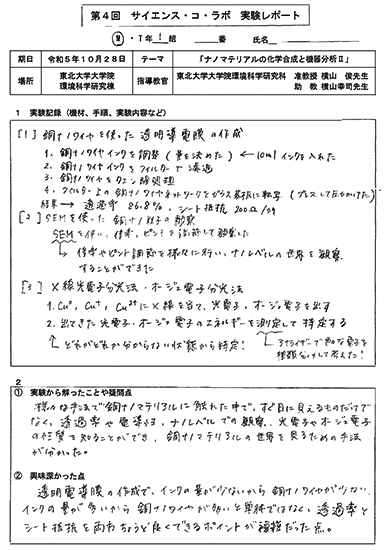 第4回 サイエンス・コ・ラボ 実験レポート
M・T 年 1 組 番 氏名
期日 令和5年10月28日 テーマ 「ナノマテリアルの化学合成と機器分析Ⅱ」
場所 東北大学大学院 環境科学研究棟 指導教官 東北大学大学院 環境科学研究科 准教授 横山 俊先生 助教 横山幸司先生
1 実験記録（機材、手順、実験内容など）
[1] 銅ナノワイヤを使った透明導電膜の作成
1. 銅ナノワイヤインクを調整（量を決めた）← 10mlインクを入れた
2. 銅ナノワイヤインクをフィルターで濾過
3. 銅ナノワイヤをクエン酸処理
4. フィルター上の銅ナノワイヤネットワークをガラス基板に転写（プレスして圧力かけた）
結果→ 透過率 86.8%, シート抵抗 200Ω/sq
[2] SEMを使った 銅ナノ粒子の観察
SEMを使い、倍率、ピントを調節して観察した
倍率やピント調節を様々に行い、ナノレベルの世界を観察
することができた
[3] X線光電子分光法・オージェ電子分光法
1. Cu⁰, Cu⁺, Cu²⁺にX線を当て、光電子・オージェ電子を出す
2. 出てきた光電子・オージェ電子のエネルギーを測定して特定する
↑どれがどれか分からない状態から特定！
アナライザーで色々な電子を
種類分けして考えた！
2
① 実験から解ったことや疑問点
様々な手法で銅ナノマテリアルに触れた中で、ただ目に見えるものだけで
なく、透過率や電導性、ナノレベルでの観察、光電子やオージェ電子
の性質を知ることができ、銅ナノマテリアルの世界を見るための手法
が分かった。
② 興味深かった点
透明電導膜の作成で、インクの量が少ないから銅ナノワイヤが少ない、
インクの量が多いから銅ナノワイヤが多いと単純ではなく、透過率と
シート抵抗を両方ちょうど良くできるポイントが複雑だった点。